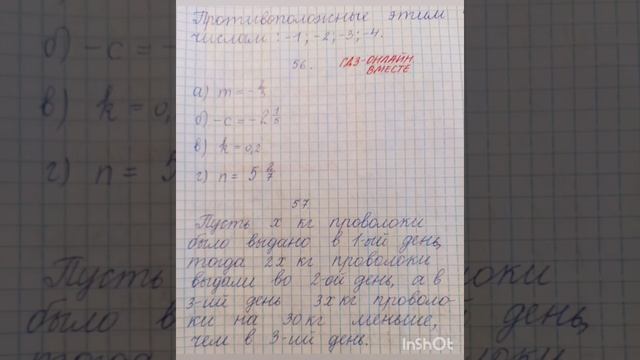 Противоположные этим
числам: -1; -2; -3; -4.
56.
ГДЗ-ОНЛАЙН
ВМЕСТЕ
а) m = -
б) -c = -2 1/5
в) k = 0,2
г) n = 5 2/7
57
Пусть x кг проволоки
было выдано в 1-ый день,
тогда 2x кг проволоки
выдали во 2-ой день, а в
3-ий день 3x кг проволо-
ки на 30 кг меньше,
чем в 3-ий день.
InShOt